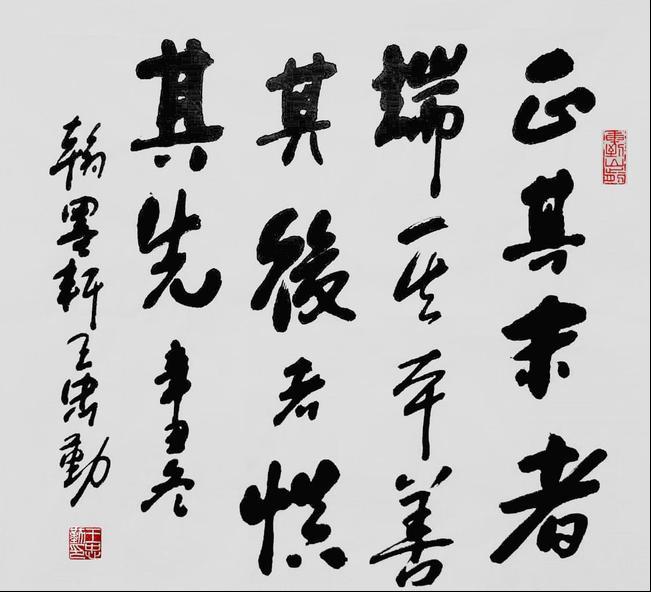 正其末者
端其本善
其後者慎
其先 辛丑冬
翰墨軒王忠勤
王忠勤印